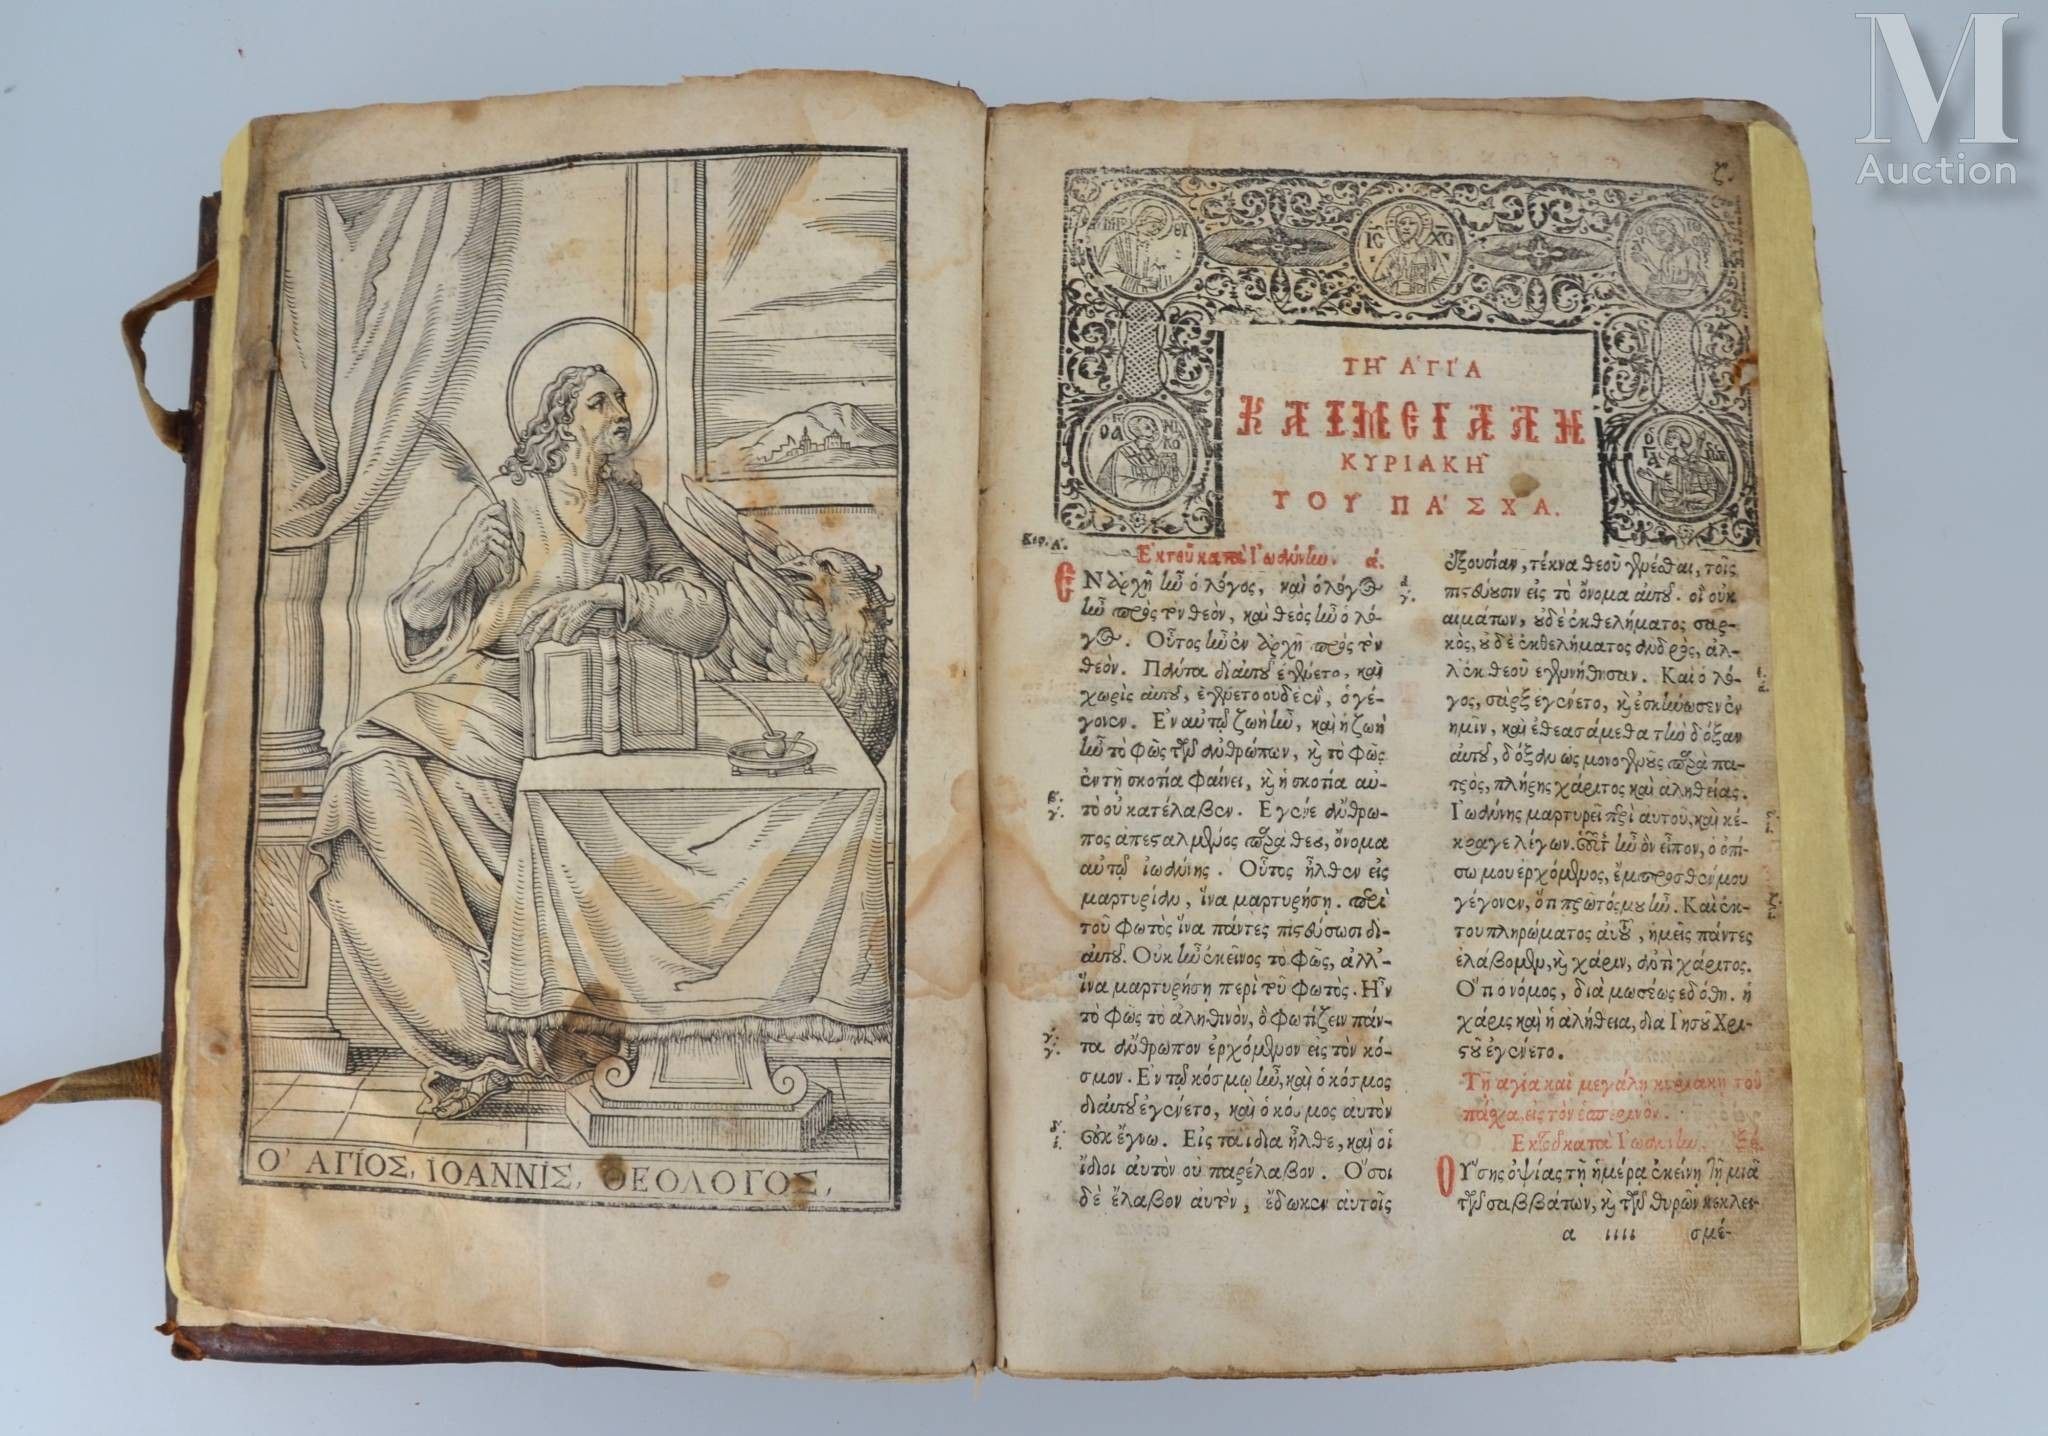 M
Auction
Ο' ΑΓΙΟΣ, ΙΟΑΝΝΙΣ, ΘΕΟΛΟΓΟΣ,
ζ.
ΜΗΡ ΘΥ
ΙC ΧC
ΤΗ͂ ΑΓΊΑ
ΚΑΙ ΜΕΓΑΛΗ
ΚΥΡΙΑΚΗ͂
ΤΟΥ ΠΑ΄ΣΧΑ.
Κεφ. Α΄.
Ἐκ τοῦ κατὰ Ἰωάννην. ά.
ἘΝ ἀρχῇ ἦν ὁ λόγος, καὶ ὁ λόγος
ἦν πρὸς τὸν θεὸν, καὶ θεὸς ἦν ὁ λό-
γος. Οὗτος ἦν ἐν ἀρχῇ πρὸς τὸν
θεόν. Πάντα δι αὐτοῦ ἐγένετο, καὶ
χωρὶς αὐτοῦ, ἐγένετο οὐδὲ ἓν, ὃ γέ-
γονεν. Ἐν αὐτῷ ζωὴ ἦν, καὶ ἡ ζωὴ
ἦν τὸ φῶς τῶν ἀνθρώπων, κὶ τὸ φῶς
ἐν τῇ σκοτία φαίνει, κὶ ἡ σκοτία αὐ-
τὸ οὐ κατέλαβεν. Ἐγένετο ἄνθρω-
πος ἀπεσταλμένος παρὰ θεοῦ, ὄνομα
αὐτῷ ἰωάννης. Οὗτος ἦλθεν εἰς
μαρτυρίαν, ἵνα μαρτυρήσῃ περὶ
τοῦ φωτὸς ἵνα πάντες πιστεύσωσι δι-
αὐτοῦ. Οὐκ ἦν ἐκεῖνος τὸ φῶς, ἀλλ'-
ἵνα μαρτυρήσῃ περὶ τοῦ φωτὸς. Ἦν
τὸ φῶς τὸ ἀληθινὸν, ὃ φωτίζει πάν-
τα ἄνθρωπον ἐρχόμενον εἰς τὸν κό-
σμον. Ἐν τῷ κόσμῳ ἦν, καὶ ὁ κόσμος
δι αὐτοῦ ἐγένετο, καὶ ὁ κόσμος αὐτὸν
οὐκ ἔγνω. Εἰς τὰ ἴδια ἦλθε, καὶ οἱ
ἴδιοι αὐτὸν οὐ παρέλαβον. Ὅσοι
δὲ ἔλαβον αὐτὸν, ἔδωκεν αὐτοῖς
ἐξουσίαν, τέκνα θεοῦ γενέσθαι, τοῖς
πιστεύουσιν εἰς τὸ ὄνομα αὐτοῦ. οἳ οὐκ
αἱμάτων, οὐδὲ ἐκ θελήματος σαρ-
κὸς, οὐδὲ ἐκ θελήματος ἀνδρὸς, ἀλ-
λ' ἐκ θεοῦ ἐγεννήθησαν. Καὶ ὁ λό-
γος, σὰρξ ἐγένετο, κὶ ἐσκήνωσεν ἐν
ἡμῖν, καὶ ἐθεασάμεθα τὴν δόξαν
αὐτοῦ, δόξαν ὡς μονογενοῦς παρὰ πα-
τρὸς, πλήρης χάριτος καὶ ἀληθείας.
Ἰωάννης μαρτυρεῖ περὶ αὐτοῦ, καὶ κέ-
κραγε λέγων. οὗτος ἦν ὃν εἶπον, ὁ ὀπί-
σω μου ἐρχόμενος, ἔμπροσθέν μου
γέγονεν, ὅτι πρῶτός μου ἦν. Καὶ ἐκ-
τοῦ πληρώματος αὐτοῦ, ἡμεῖς πάντες
ἐλάβομεν, κὶ χάριν, ἀντὶ χάριτος.
Ὅτι ὁ νόμος, διὰ μωσέως ἐδόθη. ἡ
χάρις καὶ ἡ ἀλήθεια, διὰ Ἰησοῦ Χρι-
στοῦ ἐγένετο.
Τῇ ἁγία καὶ μεγάλη κυριακῇ τοῦ
πάσχα, εἰς τὸν ἑσπερινὸν.
Ἐκ τοῦ κατὰ Ἰωάννην. ξέ.
ΟΥ̓͂σης ὀψίας τῇ ἡμέρᾳ ἐκείνῃ τῇ μιᾷ
τῶν σαββάτων, κὶ τῶν θυρῶν κεκλει-
α ιιιι σμέ-